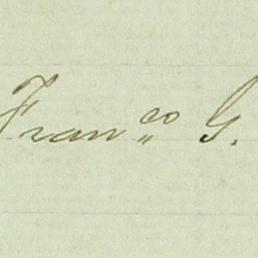 Fran.co G.